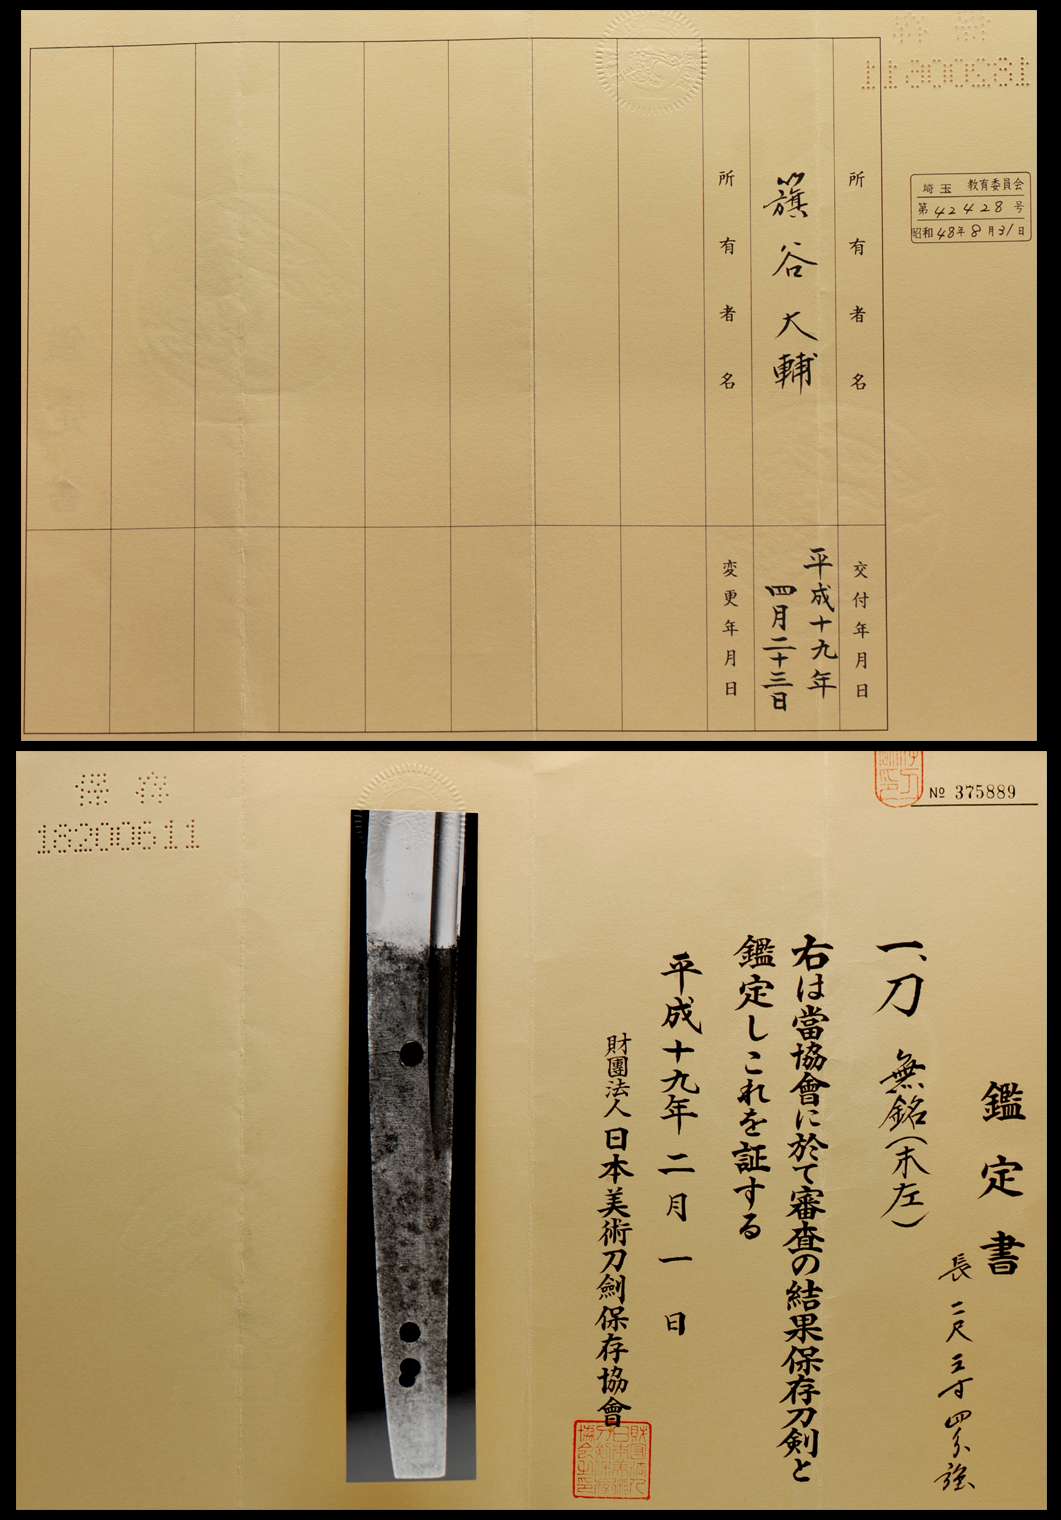 所有者名
交付年月日
籏谷大輔
平成十九年
四月二十三日
所有者名
変更年月日
埼玉 教育委員会
第42428号
昭和48年8月31日
保存
18200611
№ 375889
鑑定書
一、刀 無銘(末左)
長二尺三寸四分強
右は當協會に於て審査の結果保存刀剣と
鑑定しこれを証する
平成十九年二月一日
財團法人日本美術刀劍保存協會